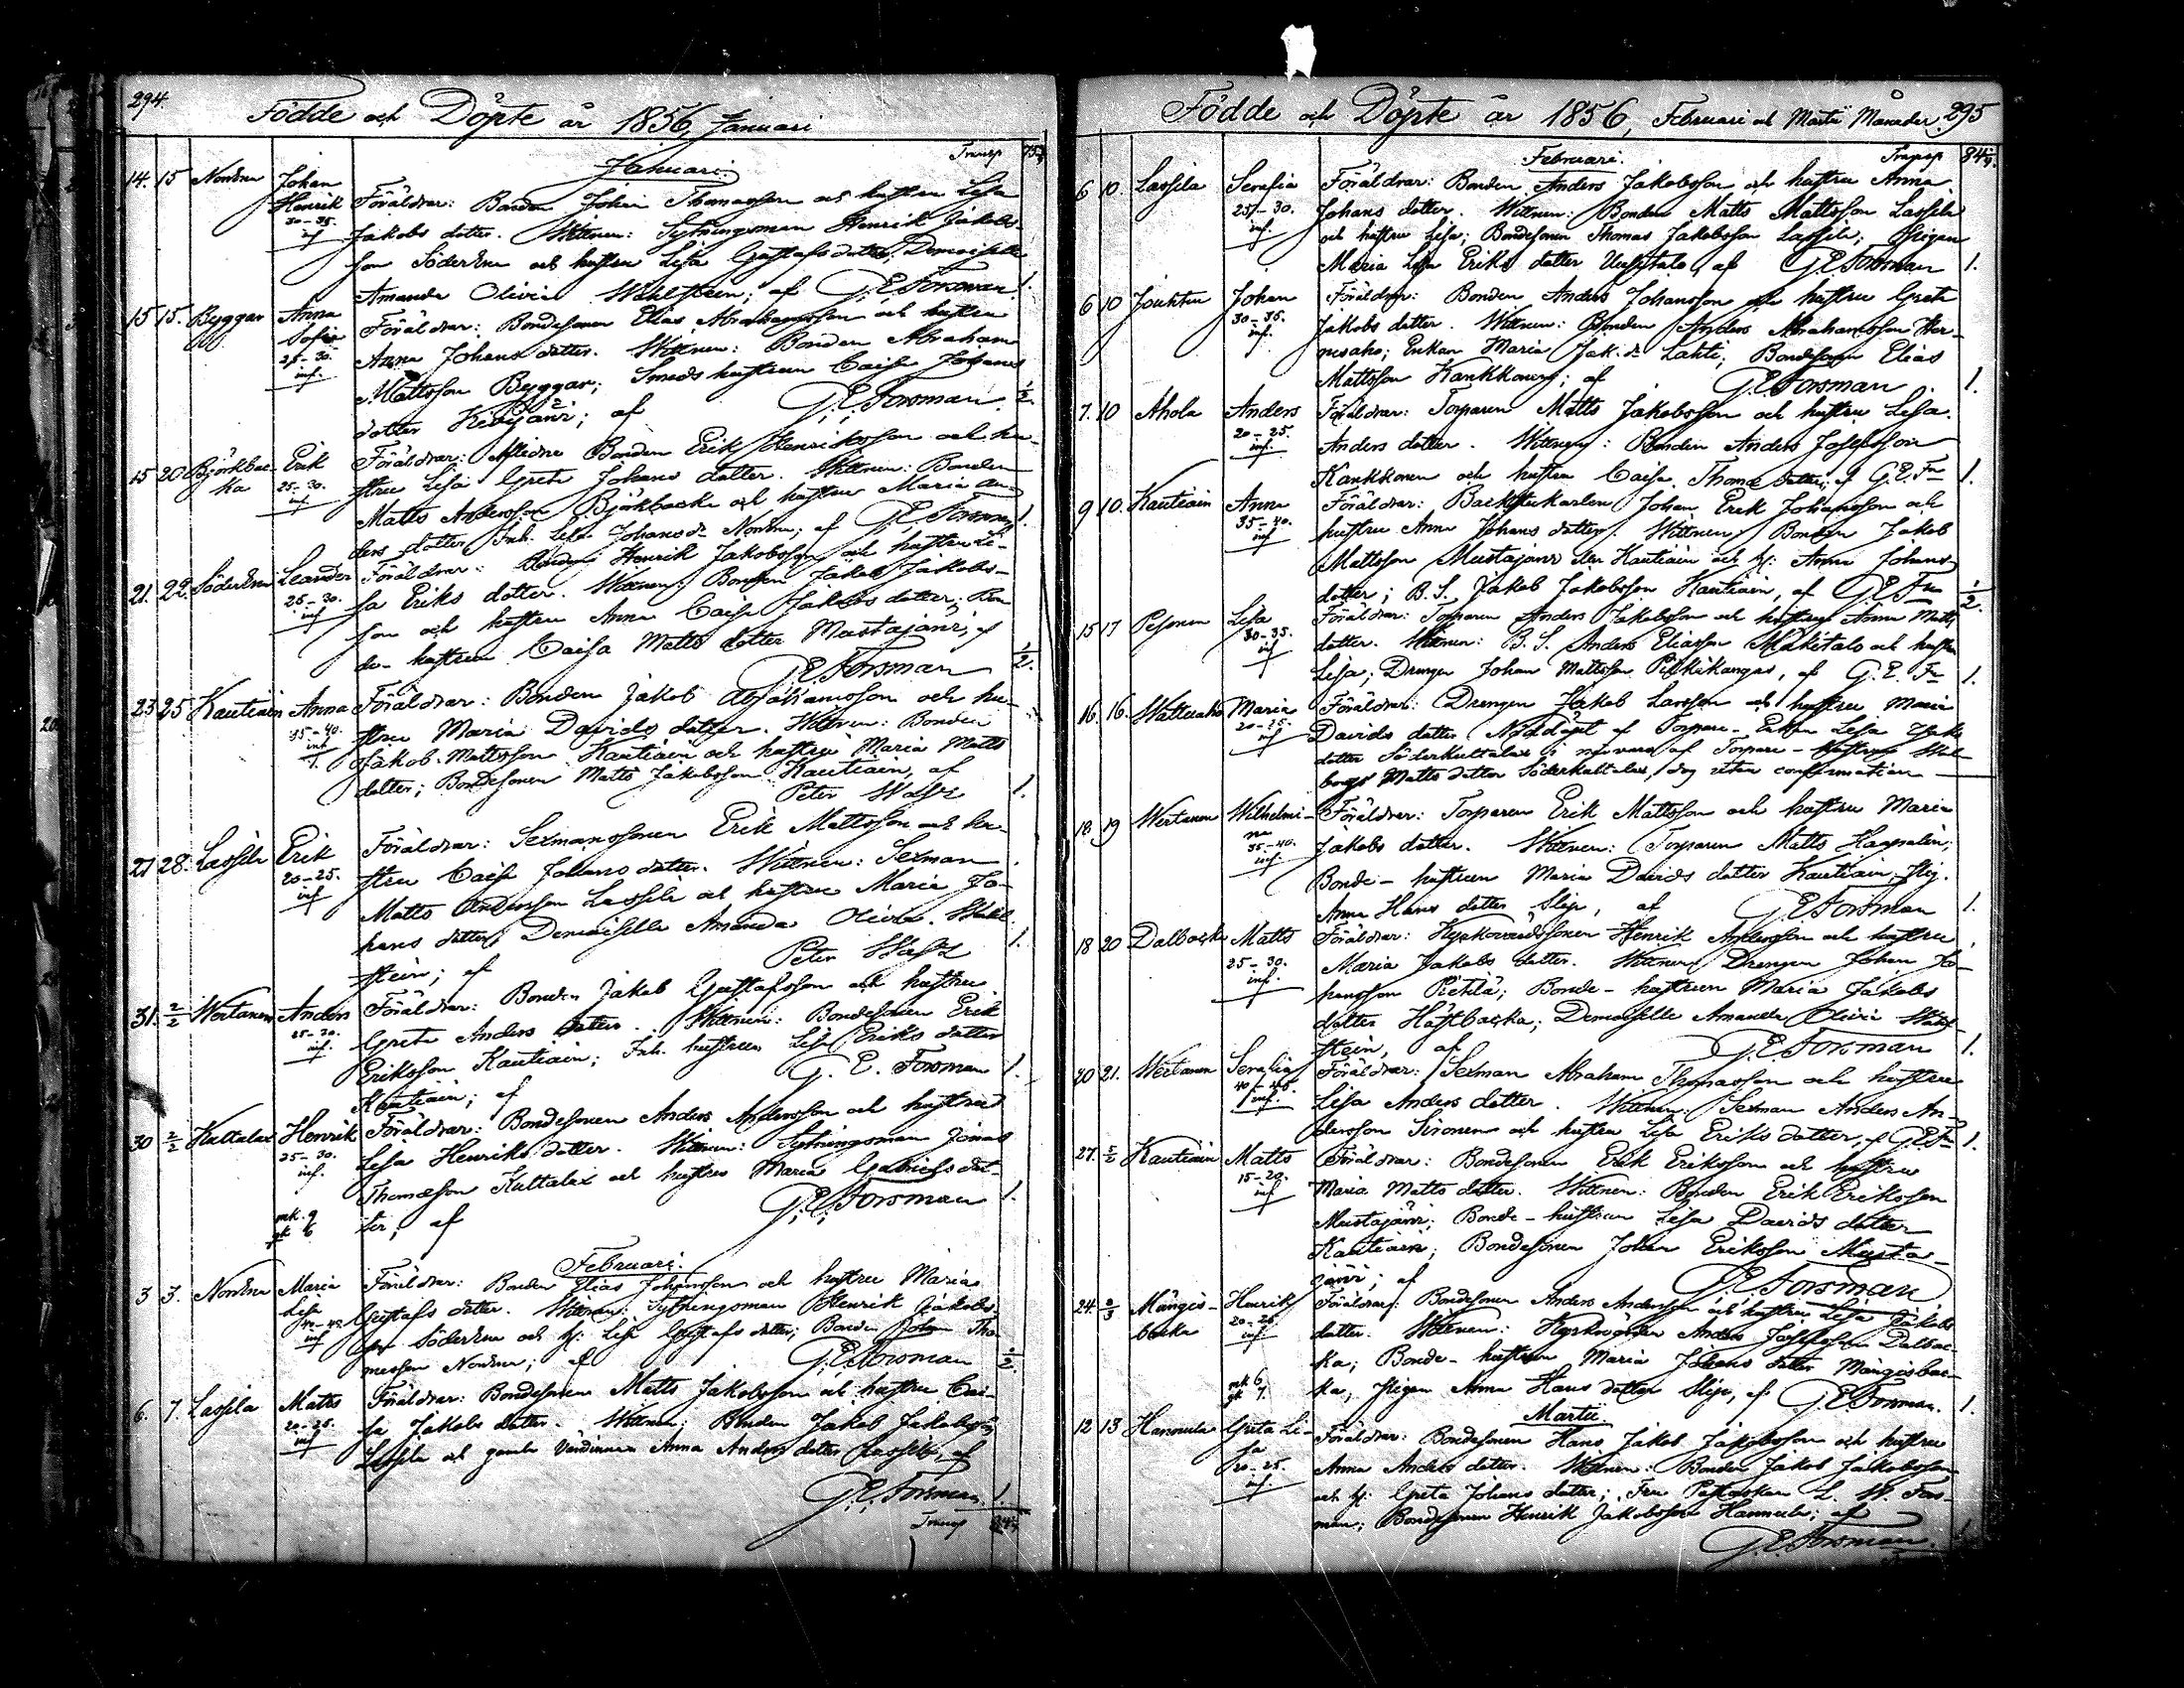 294.
Födde och Döpte år 1856, Januari
Januari.
Transp
14. 15 Nordin Johan Henrik 30-35. inf
Föräldrar: Bonden Johan Thomasson och hustru Lisa
Jakobs dotter. Wittnen: Sytningsman Henrik Jakobs-
son och hustru Lisa Gustafs dotter; Demoiselle
Amanda Olivia Wahlstein; af G. E. Forsman. 1.
15 15. Byggar Anna Sofia 25-30. inf.
Föräldrar: Bondesonen Elias Abrahamsson och hustru
Anna Johans dotter. Wittnen: Bonden Abraham
Mattsson Byggar; Smeds hustrun Caisa Johans
dotter; af G. E. Forsman. 1/2
15 20 Björkbac-ka Erik 25-30. inf
Föräldrar: Bonden Erik Henriksson och hu-
stru Lisa Greta Johans dotter. Wittnen: Bonden
Matts Andersson Björkbacka och hustru Maria An-
ders dotter; Inh. Lisa Johans dr. af G. E. Forsman 1.
21. 22. Leander 25-30. inf
Föräldrar: Bonden Henrik Jakobsson och hustru Li-
sa Eriks dotter. Wittnen: Bonden Jakob Jakobs-
son och hustru Anna Caisa Jakobs dotter; Bon-
de-hustrun Caisa Matts dotter Mustajärvi, af
G. E. Forsman 1/2.
23 25 Kautiain Anna 35-40. inf
Föräldrar: Bonden Jakob Abrahamsson och hu-
stru Maria Davids dotter. Wittnen: Bonden
Jakob Mattsson Kautiain och hustru Maria Matts
dotter; Bondesonen Matts Jakobsson Kautiain, af
Peter 1.
27 28. Lassila Erik 20-25. inf
Föräldrar: Sexmanssonen Erik Mattsson och hu-
stru Caisa Johans dotter. Wittnen: Sexman
Matts Andersson Lassila och hustru Maria Jo-
hans dotter; Demoiselle Amanda Olivia Wahl-
stein; af Peter 1.
31. 2/2 Wertanen Anders 25-30. inf.
Föräldrar: Bonden Jakob Gustafsson och hustru
Greta Anders dotter. Wittnen: Bondesonen Erik
Eriksson Kautiain; Inh. hustrun Lisa Eriks dotter
Kautiain; af G. E. Forsman 1.
30 2/2 Kultalax Henrik 25-30. inf.
Föräldrar: Bondesonen Anders Andersson och hustru
Lisa Henriks dotter. Wittnen: Sytningsman Jonas
Thomasson Kultalax och hustru Maria Gabriels dot-
ter; af G. E. Forsman 1.
mk. 9
qk 6
Februari.
3 3. Nordin Maria Lisa inf
Föräldrar: Bonden Elias Johansson och hustru Maria
Gustafs dotter. Wittnen: Sytningsman Henrik Jakobs-
son och hj: Lisa Gustafs dotter; Bonden Johan Tho-
masson Nordin; af G. E. Forsman 1/2.
6. 7. Lassila Matts 20-25. inf
Föräldrar: Bondesonen Matts Jakobsson och hustru Cai-
sa Jakobs dotter. Wittnen: Bonden Jakob Jakobsson
Lassila och gamla Värdinnan Anna Anders dotter Lassila, af
G. E. Forsman. 1.
Transp
Födde och Döpte år 1856, Februari och Martii Månader. 295
Februari.
Transp
6 10. Lassila Serafia 25-30. inf.
Föräldrar: Bonden Anders Jakobsson och hustru Anna
Johans dotter. Wittnen: Bonden Matts Mattsson Lassila
och hustru Lisa; Bondesonen Thomas Jakobsson Lassila; Pigan
Maria Lisa Eriks dotter af G. E. Forsman 1.
6 10 Johan 30-35. inf.
Föräldrar: Bonden Anders Johansson och hustru Greta
Jakobs dotter. Wittnen: Bonden Anders Abrahamsson Her-
nesaho; Enkan Maria Jak. dr. Lahti; Bondesonen Elias
Mattsson Kankkonen; af G. E. Forsman 1.
7. 10 Ahola Anders 20-25. inf.
Föräldrar: Torparen Matts Jakobsson och hustru Lisa
Anders dotter. Wittnen: Bonden Anders Josephsson
Kankkonen och hustru Caisa Thomæ dotter; af G. E. Fn 1.
9 10. Kautiain Anna 35-40. inf
Föräldrar: Backstukarlen Johan Erik Johansson och
hustru Anna Johans dotter. Wittnen: Bonden Jakob
Mattsson Mustajärvi Kautiain och hj: Anna Johans
dotter; B. S. Jakob Jakobsson Kautiain, af G. E. Fn 1/2.
15 17 Pesonen Lisa 30-35. inf
Föräldrar: Torparen Anders Jakobsson och hustru Anna Matts
dotter. Wittnen: B. S. Anders Eliasson Mäkitalo och hustru
Lisa; Drengen Johan Mattsson af G. E. Fn 1.
16. 16. Maria 20-25. inf
Föräldrar: Drengen Jakob Larsson och hustru Maria
Davids dotter. Nöddöpt af Torpare-Enkan Lisa
dotter Söderkultalax i närvaro af Torpare-hustrun Wal-
borg Matts dotter Söderkultalax, dog utan confirmation
18 19 Wertanen Wilhelmi-na 35-40. inf.
Föräldrar: Torparen Erik Mattsson och hustru Maria
Jakobs dotter. Wittnen: Torparen Matts Haapalain;
Bonde-hustrun Maria Davids dotter Kautiain, Pig.
Anna Hans dotter Slip, af G. E. Forsman 1.
18 20 Dalbacka Matts 25-30. inf.
Föräldrar: Kyrkovärdssonen Henrik Andersson och hustru
Maria Jakobs dotter. Wittnen: Drengen Johan Jo-
hansson Pietilä; Bonde-hustrun Maria Jakobs
dotter Hästbacka; Demoiselle Amanda Olivia Wahl-
stein, af G. E. Forsman 1.
20 21. Wertanen Serafia 40-45. inf.
Föräldrar: Sexman Abraham Thomasson och hustru
Lisa Anders dotter. Wittnen: Sexman Anders An-
dersson Sironen och hustru Lisa Eriks dotter, af G. E. Fn 1.
27. Kautiain Matts 15-20. inf
Föräldrar: Bondesonen Erik Eriksson och hustru
Maria Matts dotter. Wittnen: Bonden Erik Eriksson
Mustajärvi; Bonde-hustrun Lisa Davids dotter
Kautiain; Bondesonen Johan Eriksson Musta-
järvi; af G. E. Forsman
24. 2/3 Mångis-backa Henrik 20-25. inf.
Föräldrar: Bondesonen Anders Andersson och hustru Lisa Jakobs
dotter. Wittnen: Kyrkovärden Anders Josephsson Dalbac-
ka; Bonde-hustrun Maria Johans dotter Mångisbac-
ka, Pigan Anna Hans dotter Slip, af G. E. Forsman. 1.
mk 6
qk 7.
Martii.
12 13 Hannula Greta Li-sa 20-25. inf.
Föräldrar: Bondesonen Hans Jakob Jakobsson och hustru
Anna Anders dotter. Wittnen: Bonden Jakob Jakobsson
och hj: Greta Johans dotter; Fru Pastorskan L. W. Fors-
man; Bondesonen Henrik Jakobsson Hannula; af
G. E. Forsman.